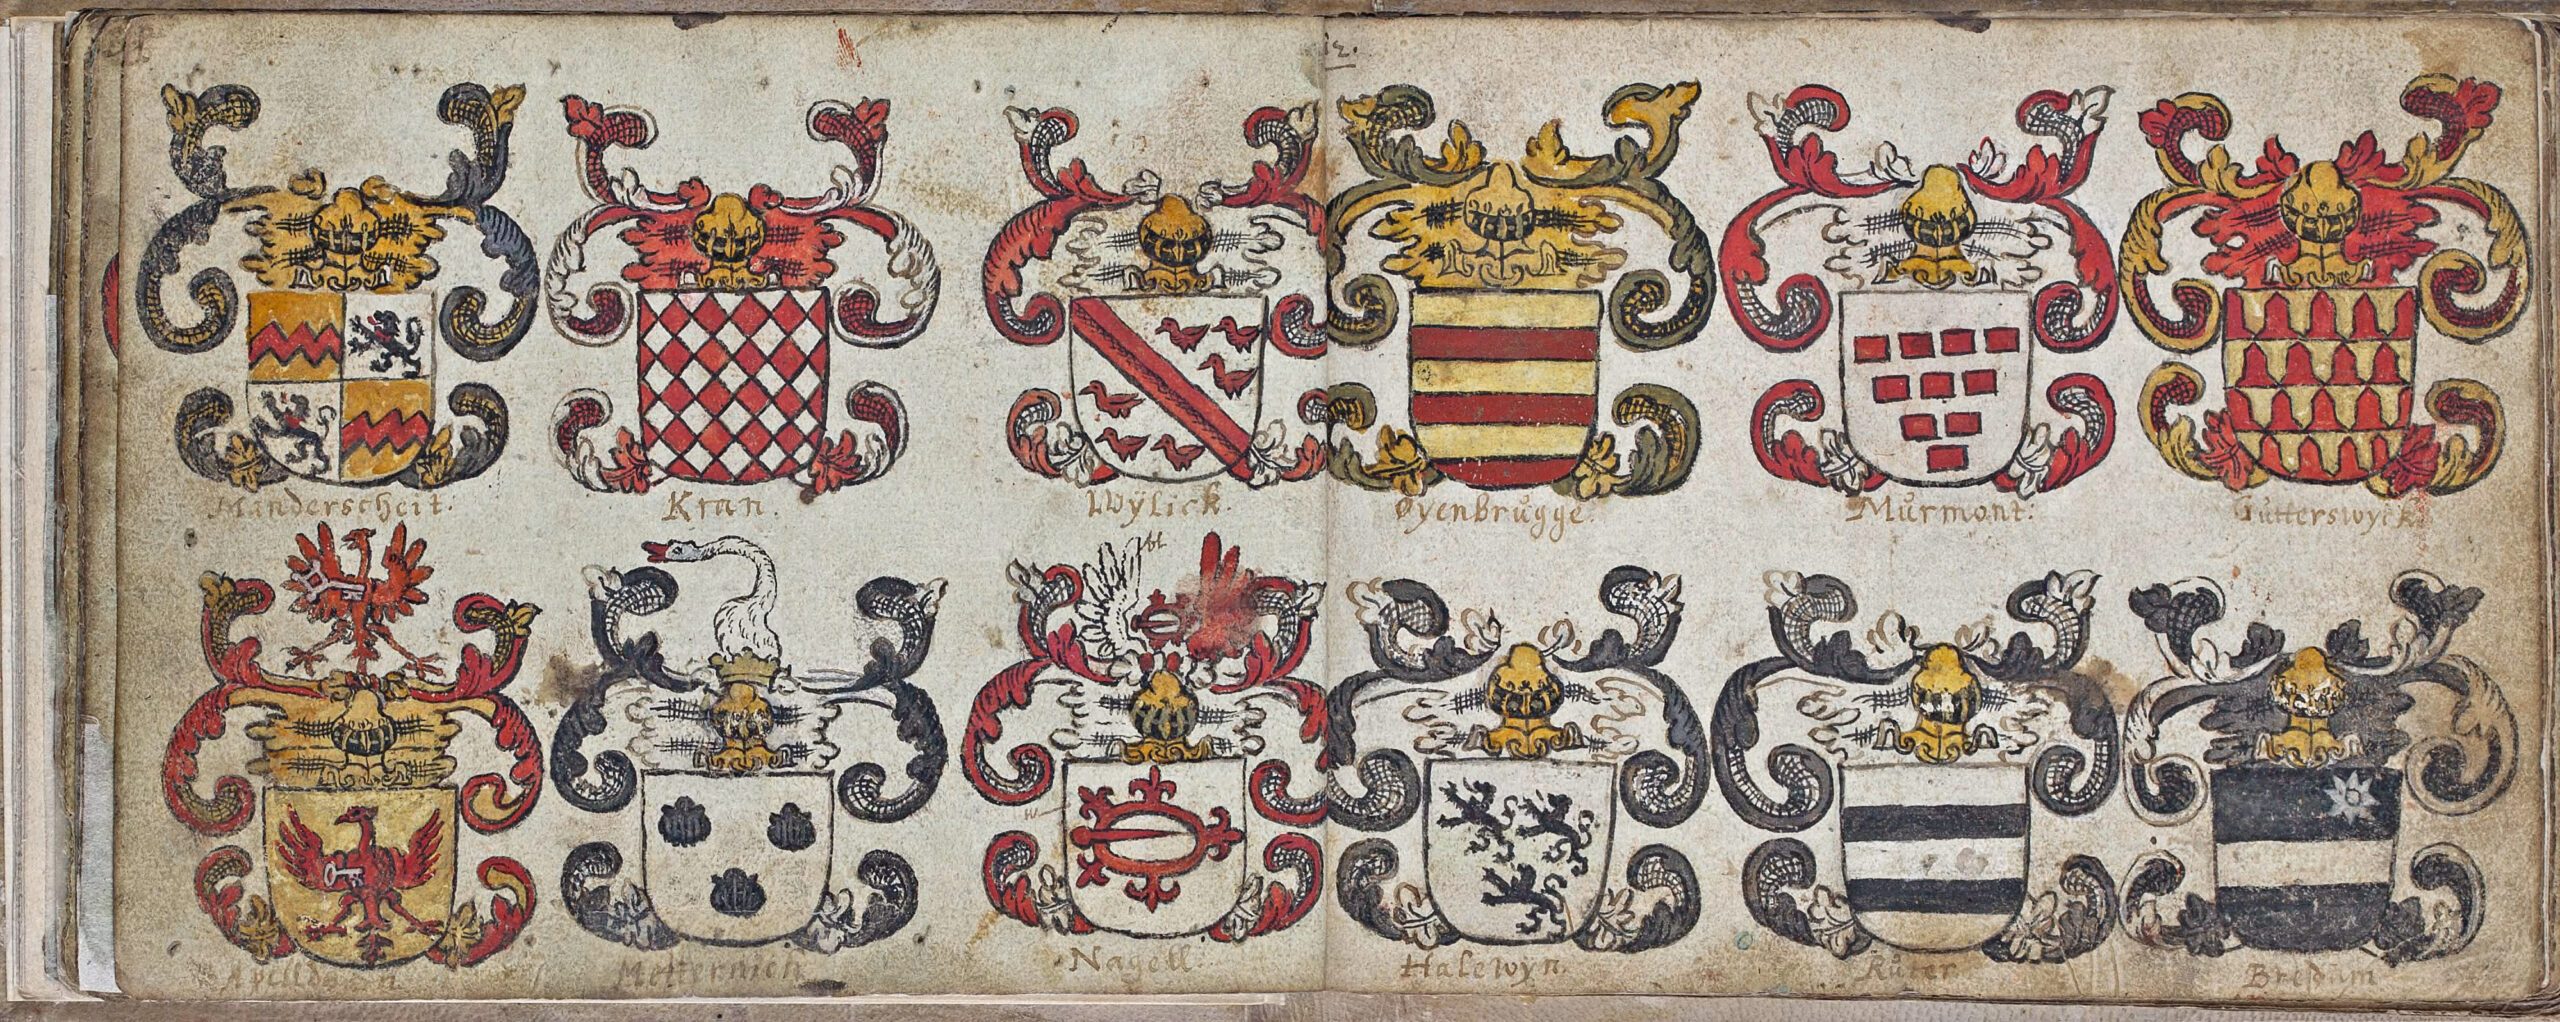 12.
Manderscheit:
Kran.
Wÿlick.
Øyenbrůgge.
Můrmont:
Gůtterswyck.
bl
Apelldoorn
Metternich
Nagell.
Halewÿn.
Růter
Bredam